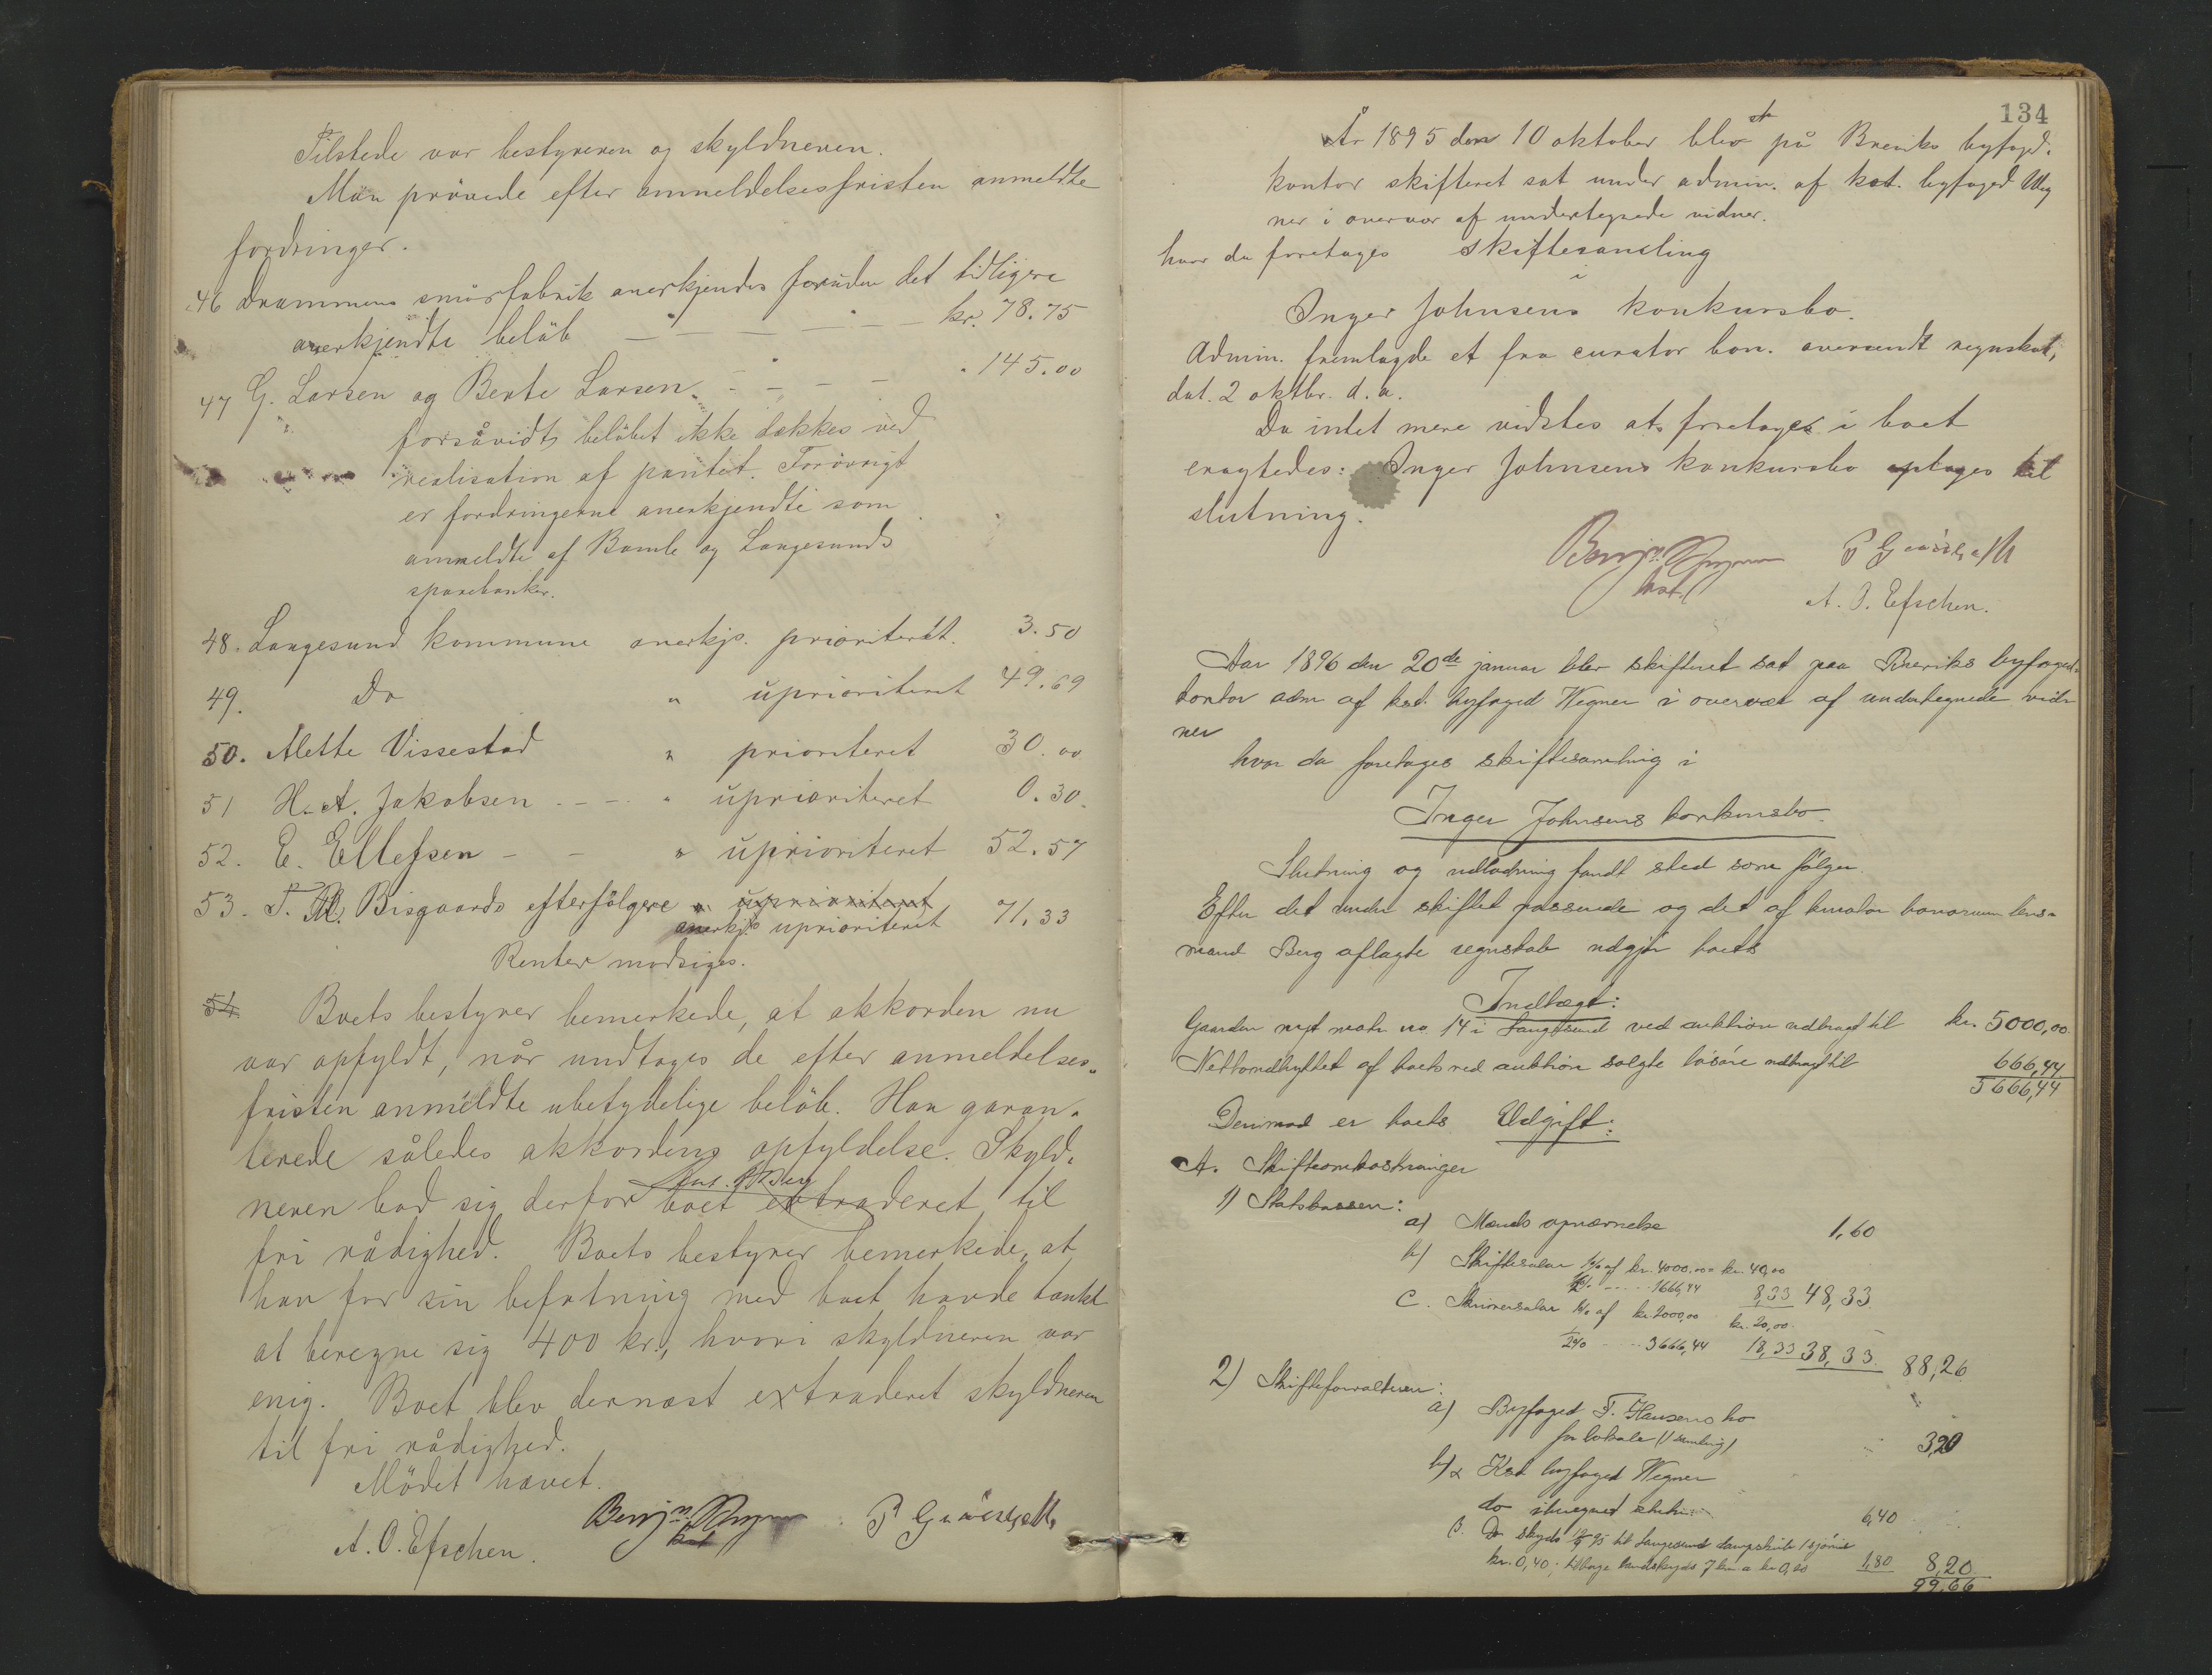 Tilstede var bestyreren og skyldneren.
Man prøvede efter anmeldelsesfristen anmeldte
fordringer.
46 Drammens smørfabrik anerkjendes foruden det tidligere
anerkjendte beløb — " — — " — — kr. 78.75
47 G. Larsen og Bente Larsen. - - - - " 145.00
forsåvidt beløbet ikke dækkes ved
realisation af pantet. Forøvrigt
er fordringerne anerkjendte som
anmeldte af Bamle og Langesunds
sparebanker.
48. Langesund kommune anerkjs. prioriteret. 3.50
49. Do " uprioriteret 49.69
50. Mette Vissestad " prioriteret 30.00
51 H. A. Jakobsen - - - " uprioriteret 0.30.
52. E. Ellefsen - - " uprioriteret 52.57
53. T. M. Bisgaards efterfølgere " uprioriteret
anerkj. uprioriteret 71.33
Renter modsiges.
54. Boets bestyrer bemerkede, at akkorden nu
var opfyldt, når undtages de efter anmeldelses-
fristen anmeldte ubetydelige beløb. Han garan-
terede således akkordens opfyldelse. Skyld-
neren bad sig derfor boet extraderet til
fri rådighed. Boets bestyrer bemerkede, at
han for sin befatning med boet havde tænkt
at beregne sig 400 kr., hvori skyldneren var
enig. Boet blev dernæst extraderet skyldneren
til fri rådighed.
Mødet hævet.
Benj. Wegner
kst
A. O. Efschen.
134
År 1895 den 10 oktober blev på Breviks byfogd-
kontor skifteret sat under admin. af kst. byfoged Weg
ner i overvær af undertegnede vidner.
hvor da foretages skiftesamling
i
Inger Johnsens konkursbo.
Admin. fremlagde et fra curator bon. oversendt regnskab,
dat. 2 oktbr. d. a.
Da intet mere vidstes at foretages i boet
eragtedes: Inger Johnsens konkursbo optages til
slutning.
Benj. Wegner
kst.
A. O. Efschen.
Aar 1896 den 20de januar blev skifteret sat paa Breviks byfoged-
kontor adm af kst. byfoged Wegner i overvær af undertegnede vid-
ner
hvor da foretages skiftesamling i
Inger Johnsens konkursbo.
Slutning og udlodning fandt sted som følger.
Efter det under skiftet passerede og det af kurator bonorum lens-
mand Berg aflagte regnskab udgjør boets
Indtægt:
Gaarden nyt matr no. 14 i Langesund ved auktion udbragt til kr. 5000,00.
Nettoudbyttet af boets ved auktion solgte løsøre udbragt til 666,44
5666,44
Derimod er boets Udgift:
A. Skifteomkostninger
1) Statskassen:
a) Mænds opnævnelse 1,60
b) Skiftesalær 1% af kr. 4000.00 kr. 40,00
½% - - - 1666,44 8,33 48,33
C. Skriversalær 1% af kr. 2000,00 kr. 20,00.
½% - - 3666,44 18,33 38,33. 88,26
2) Skifteforvalteren:
a) Byfoged T. Hansens bo
for lokale (1 samling) 3,20
b) α Kst byfoged Wegner
do 6,40
β. Do skyds til Langesund dampskib
kr. 0,40; tilbage landskyds 7 km a kr 0,20 1,80 8,20
99,66